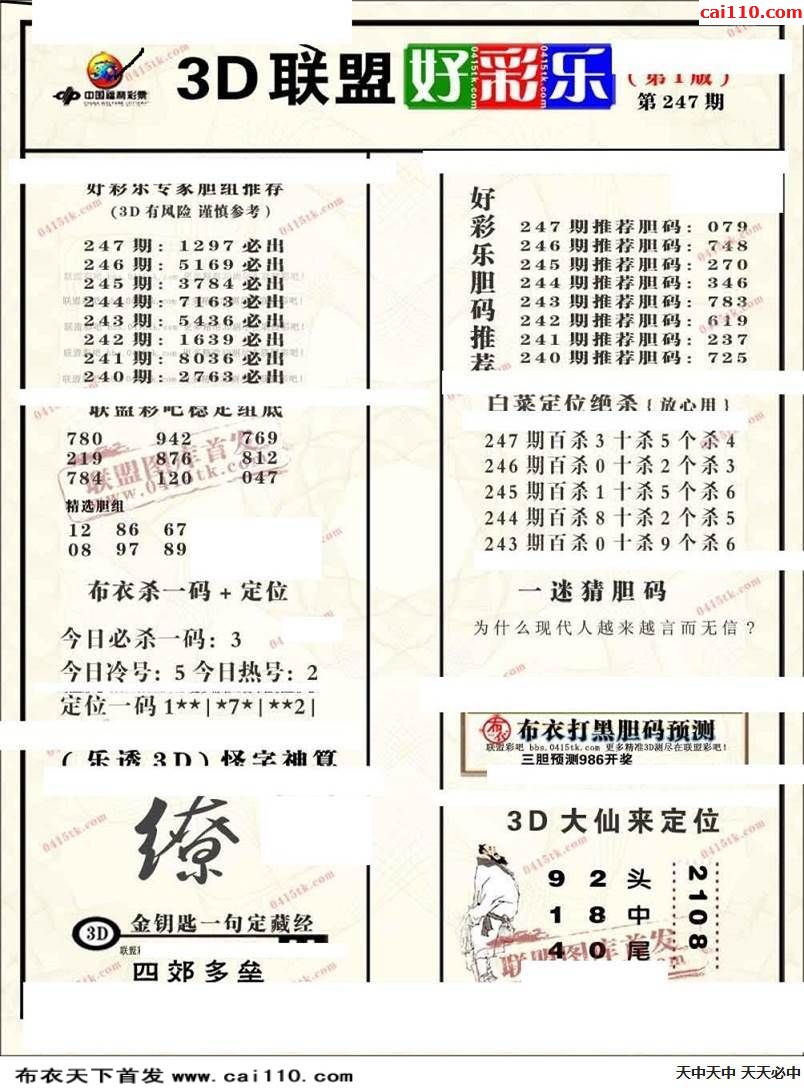 cai110.com
中国福利彩票
CHINA WELFARE LOTTERY
3D联盟好彩乐
(第1版)
第247期
好彩乐专家胆组推荐
(3D有风险 谨慎参考)
247期：1297必出
246期：5169必出
245期：3784必出
244期：7163必出
243期：5436必出
242期：1639必出
241期：8036必出
240期：2763必出
联盟彩吧稳定组底
780 942 769
219 876 812
784 120 047
精选胆组
12 86 67
08 97 89
布衣杀一码+定位
今日必杀一码：3
今日冷号：5 今日热号：2
定位一码1**|*7*|**2|
(乐透3D)怪字神算
缭
3D
金钥匙一句定藏经
四郊多垒
好彩乐胆码推荐
247期推荐胆码：079
246期推荐胆码：748
245期推荐胆码：270
244期推荐胆码：346
243期推荐胆码：783
242期推荐胆码：619
241期推荐胆码：237
240期推荐胆码：725
白菜定位绝杀{放心用}
247期百杀3十杀5个杀4
246期百杀0十杀2个杀3
245期百杀1十杀5个杀6
244期百杀8十杀2个杀5
243期百杀0十杀9个杀6
一迷猜胆码
为什么现代人越来越言而无信？
布衣
布衣打黑胆码预测
联盟彩吧 bbs.0415tk.com 更多精准3D测尽在联盟彩吧！
三胆预测986开奖
3D大仙来定位
9 2 头
1 8 中
4 0 尾
2108
联盟图库首发
www.0415tk.com
联盟图库首发
0415tk.com
布衣天下首发 www.cai110.com
天中天中 天天必中